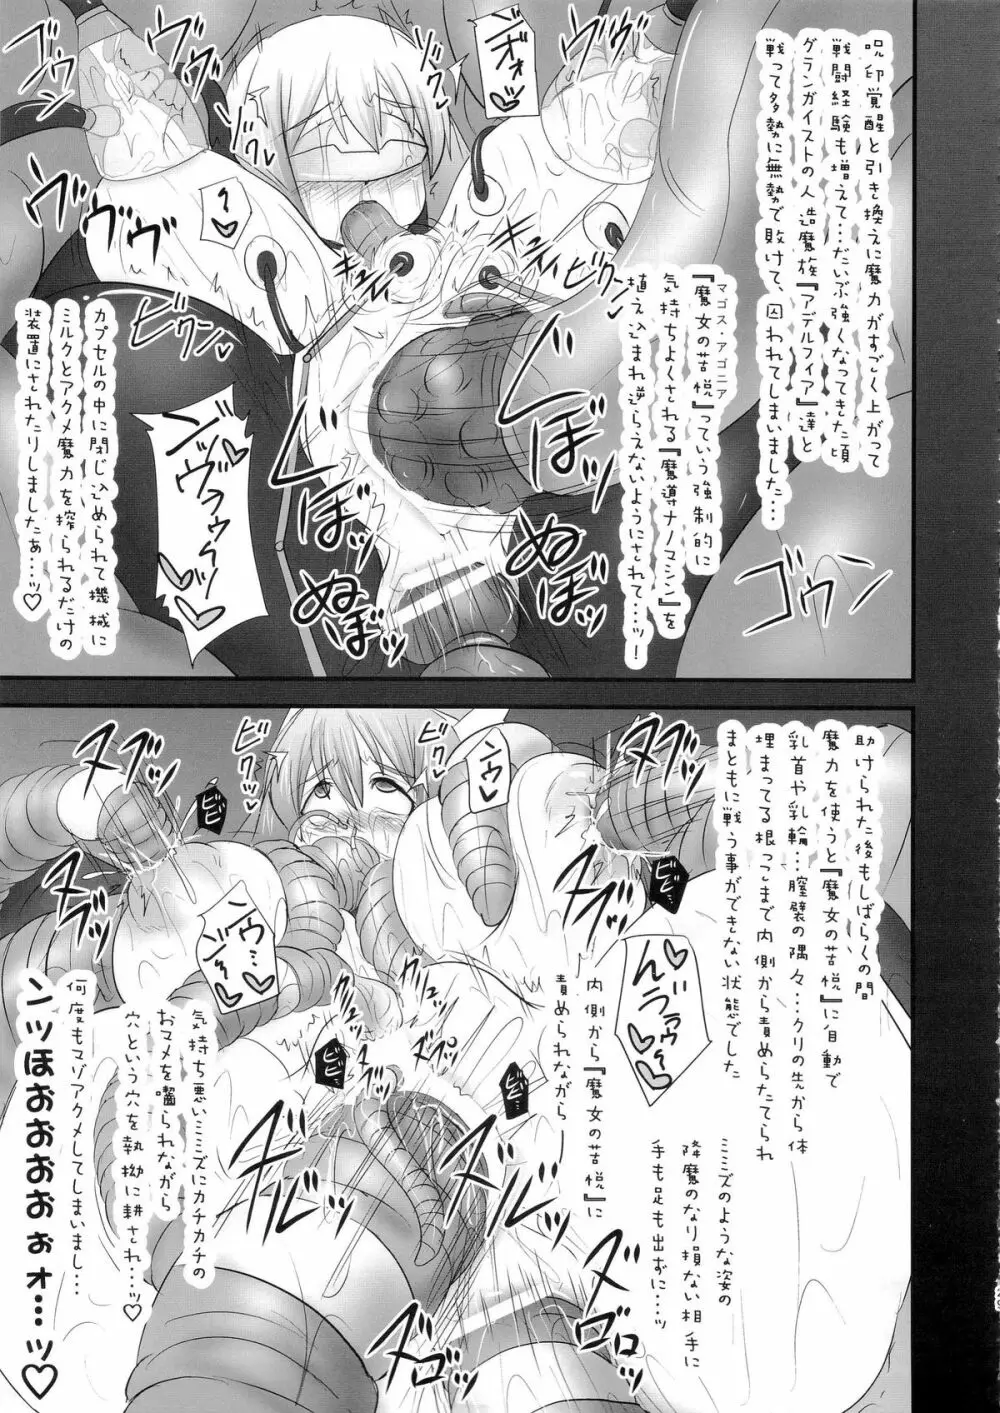 呪印覚醒と引き換えに魔力がすごく上がって
戦闘経験も増えて…だいぶ強くなってきた頃
グランガイストの人造魔族『アデルフィア』達と
戦って多勢に無勢で敗けて、囚われてしまいました…
マゴス・アゴニア
『魔女の苦悦』っていう強制的に
気持ちよくされる『魔導ナノマシン』を
植え込まれ逆らえないようにされて…ッ!
カプセルの中に閉じ込められて機械に
ミルクとアクメ魔力を搾られるだけの
装置にされたりしましたぁ…ッ♡
ゴウン
ビクンッ
ビクンッ
ぬぼッ
ぬぼッ
助けられた後もしばらくの間
魔力を使うと『魔女の苦悦』に自動で
乳首や乳輪…膣襞の隅々…クリの先から体
埋まってる根っこまで内側から責めらたてられ
まともに戦う事ができない状態でした
ミミズのような姿の
降魔のなり損ない相手に
手も足も出ずに…ッ
内側から『魔女の苦悦』に
責められながら
気持ち悪いミミズにカチカチの
おマメを囓られながら
穴という穴を執拗に耕され…ッ♡
何度もマゾアクメしてしまいまし…
ンッほぉぉぉぉォ…ッ♡
ビビ
ビビ
ビビ
ビビ